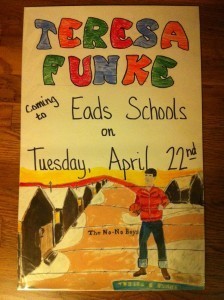 TERESA
FUNKE
Coming
to Eads Schools
on
Tuesday, April 22nd
The No-No Boys
TERESA R. FUNKE